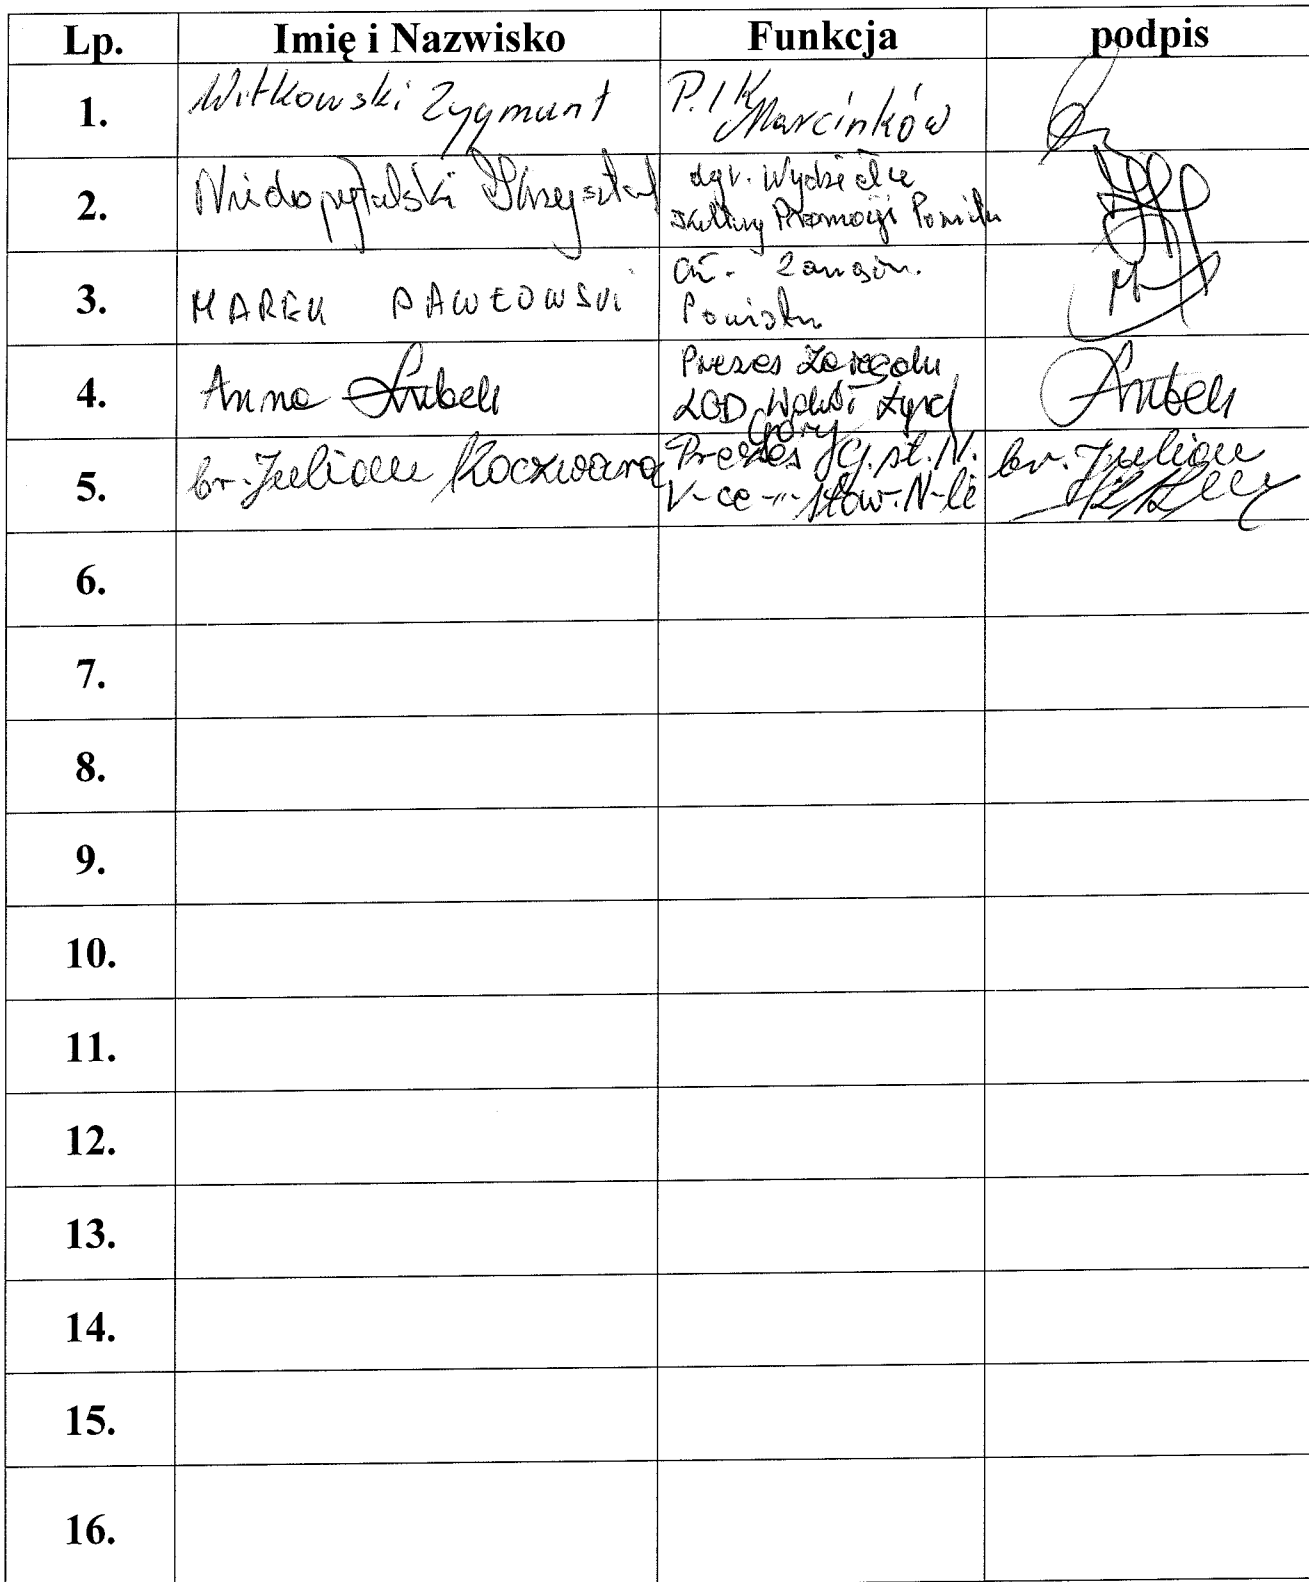 Lp. Imię i Nazwisko Funkcja podpis
1. Witkowski Zygmunt P.IK Marcinków
2. Niedopytalski Krzysztof dyr. Wydziału
Kultury Promocji Powiatu
3. MAREK PAWŁOWSKI
Powiatu
4. Anna Prezes Zarządu
LGD
Góry
5. br. Julian Koczwara Prezes br. Julian
V-ce -"- Stow. N-le
6.
7.
8.
9.
10.
11.
12.
13.
14.
15.
16.